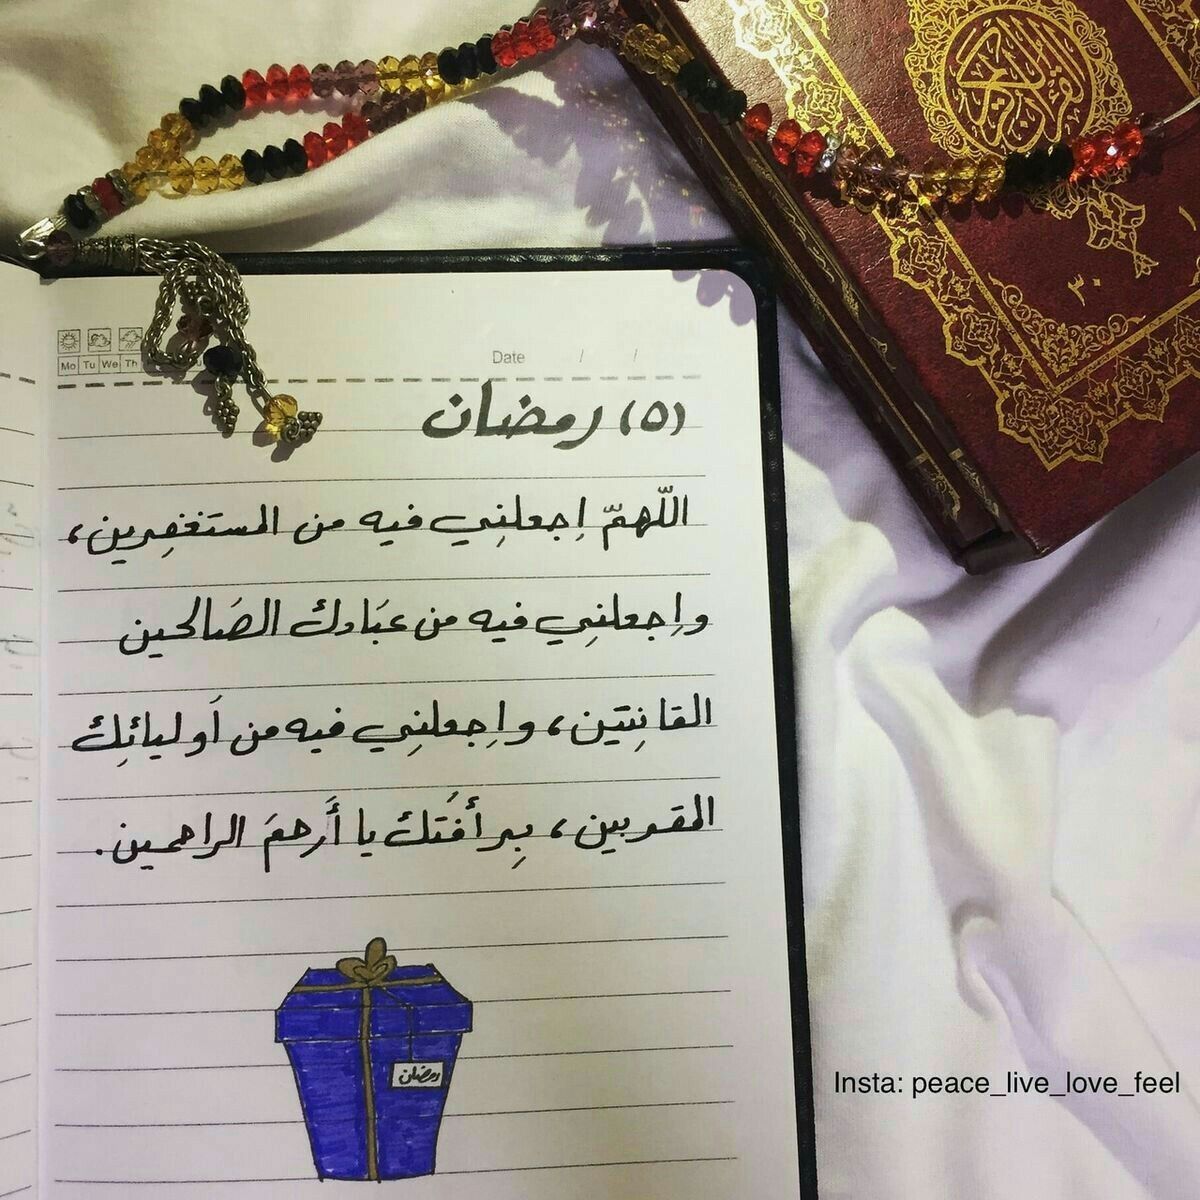 القرآن الكريم
٣٠
Mo Tu We Th
Date / /
(٥) رمضان
اللّهمّ اِجعلنِي فيه من المستغفِرين،
واِجعلنِي فيه من عبَادك الصَالحين
القانِتين، واِجعلنِي فيه من اَوليائِك
المقربين، بِرأفَتك يا أَرحمَ الراحمين.
رمضان
Insta: peace_live_love_feel